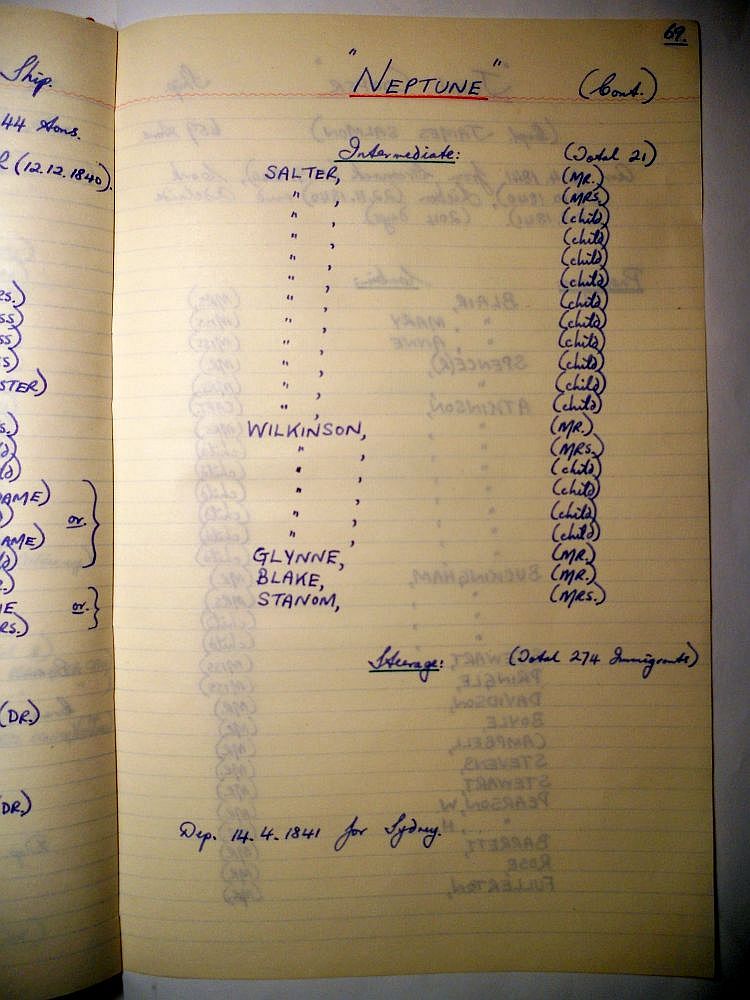 Ship.
44 Tons.
(12.12.1840).
(DR.)
(DR.)
69.
"NEPTUNE" (Cont.)
Intermediate: (Total 21)
SALTER, (MR.)
" , (MRS.)
" , (child)
" , (child)
" , (child)
" , (child)
" , (child)
" , (child)
" , (child)
" , (child)
" , (child)
" , (child)
WILKINSON, (MR.)
" , (MRS.)
" , (child)
" , (child)
" , (child)
" , (child)
GLYNNE, (MR.)
BLAKE, (MR.)
STANOM, (MRS.)
Steerage: (Total 274 Immigrants)
Dep. 14.4.1841 for Sydney.